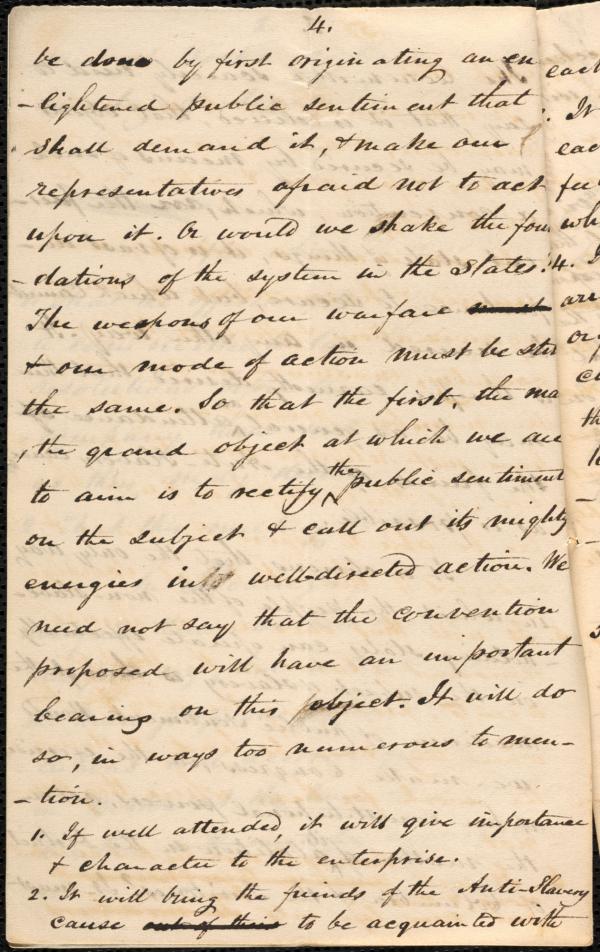 4.
be done by first originating an en
-lightened public sentiment that
shall demand it, & make our
representatives afraid not to act
upon it. Or would we shake the foun
-dations of the system in the States?
The weapons of our warfare must
& our mode of action must be still
the same. So that the first, the ma
, the grand object at which we are
to aim is to rectify the public sentiment
on the subject & call out its mighty
energies into well-directed action. We
need not say that the convention
proposed will have an important
bearing on this object. It will do
so, in ways too numerous to men-
-tion.
1. If well attended, it will give importance
& character to the enterprise.
2. It will bring the friends of the Anti-Slavery
cause out of their to be acquainted with
each
It
eac
wh
4.